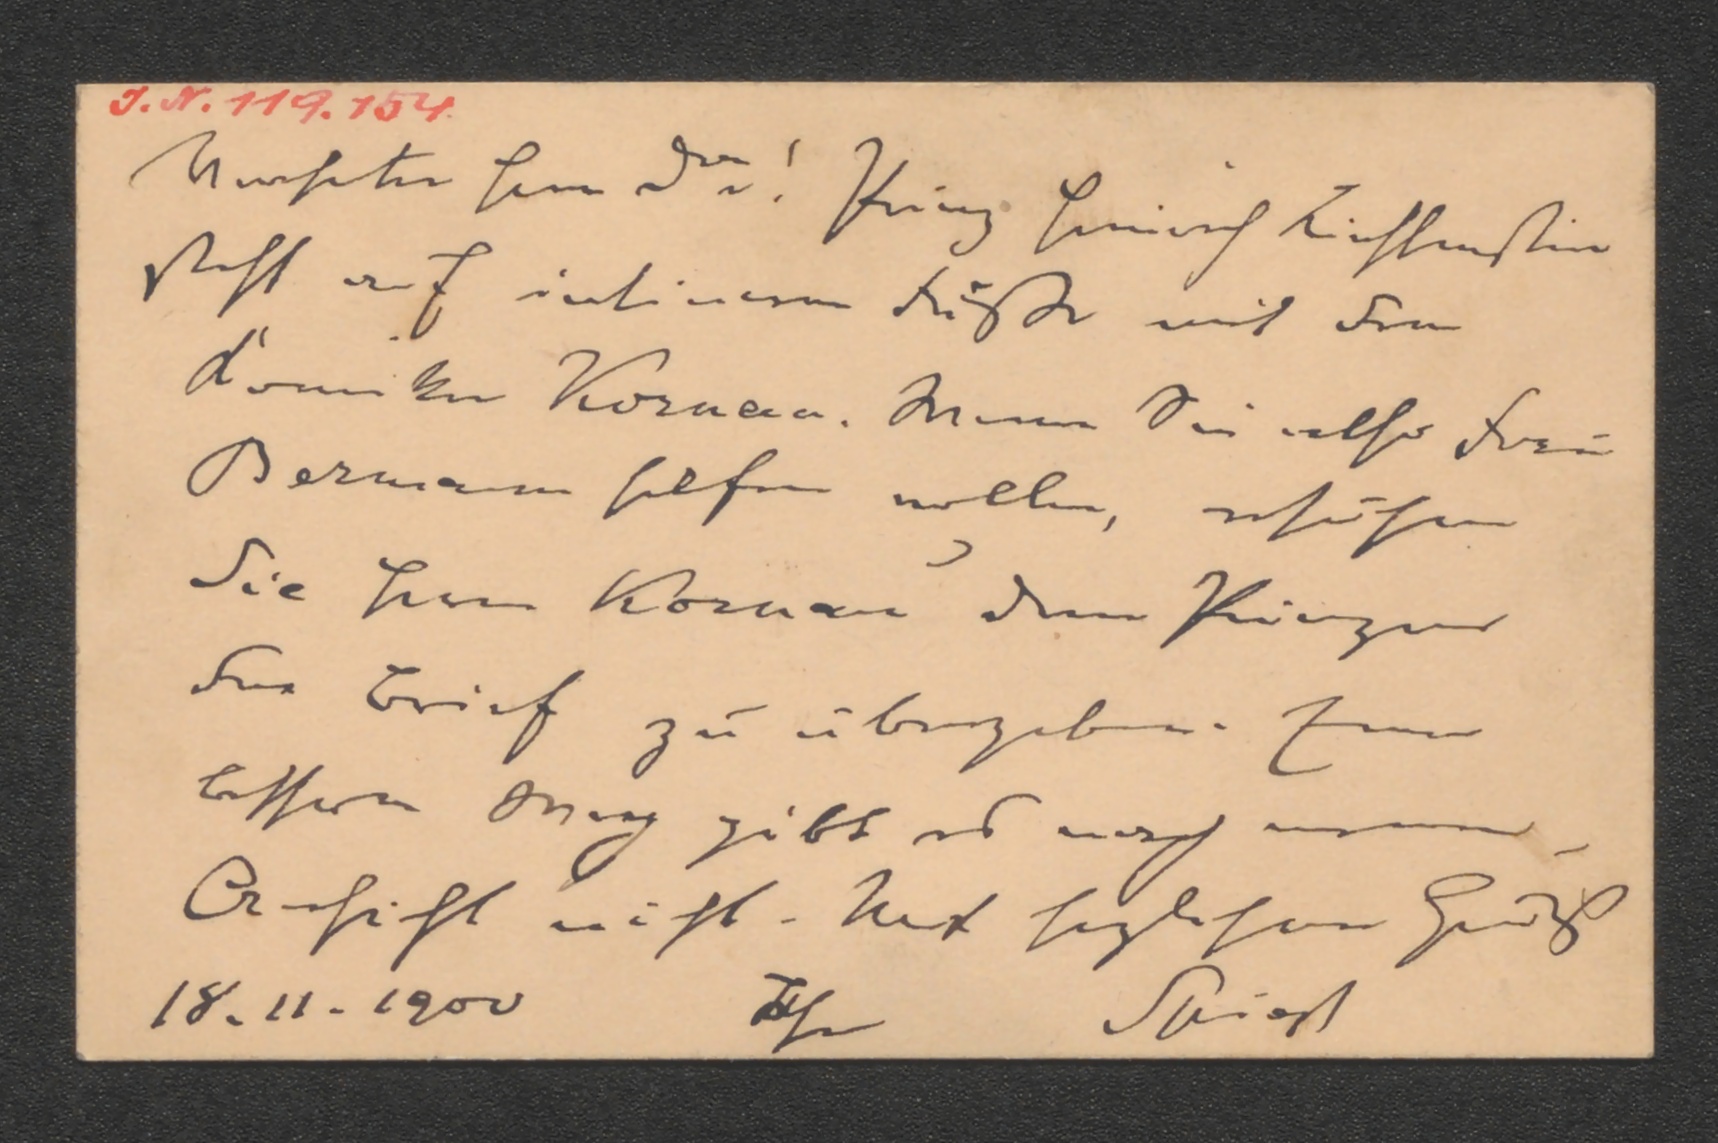 I.N. 119.154
Verehrter Herr Dr! Prinz Heinrich Liechtenstein
steht auf intimem Fuße mit dem
Komiker Kornau. Wenn Sie also Frau
Bermann helfen wollen, ersuchen
Sie Herrn Kornau dem Prinzen
den Brief zu übergeben. Einen
besseren Weg gibt es nach meiner
Ansicht nicht. Mit herzlichem Gruß
18.11.1900 Ihr